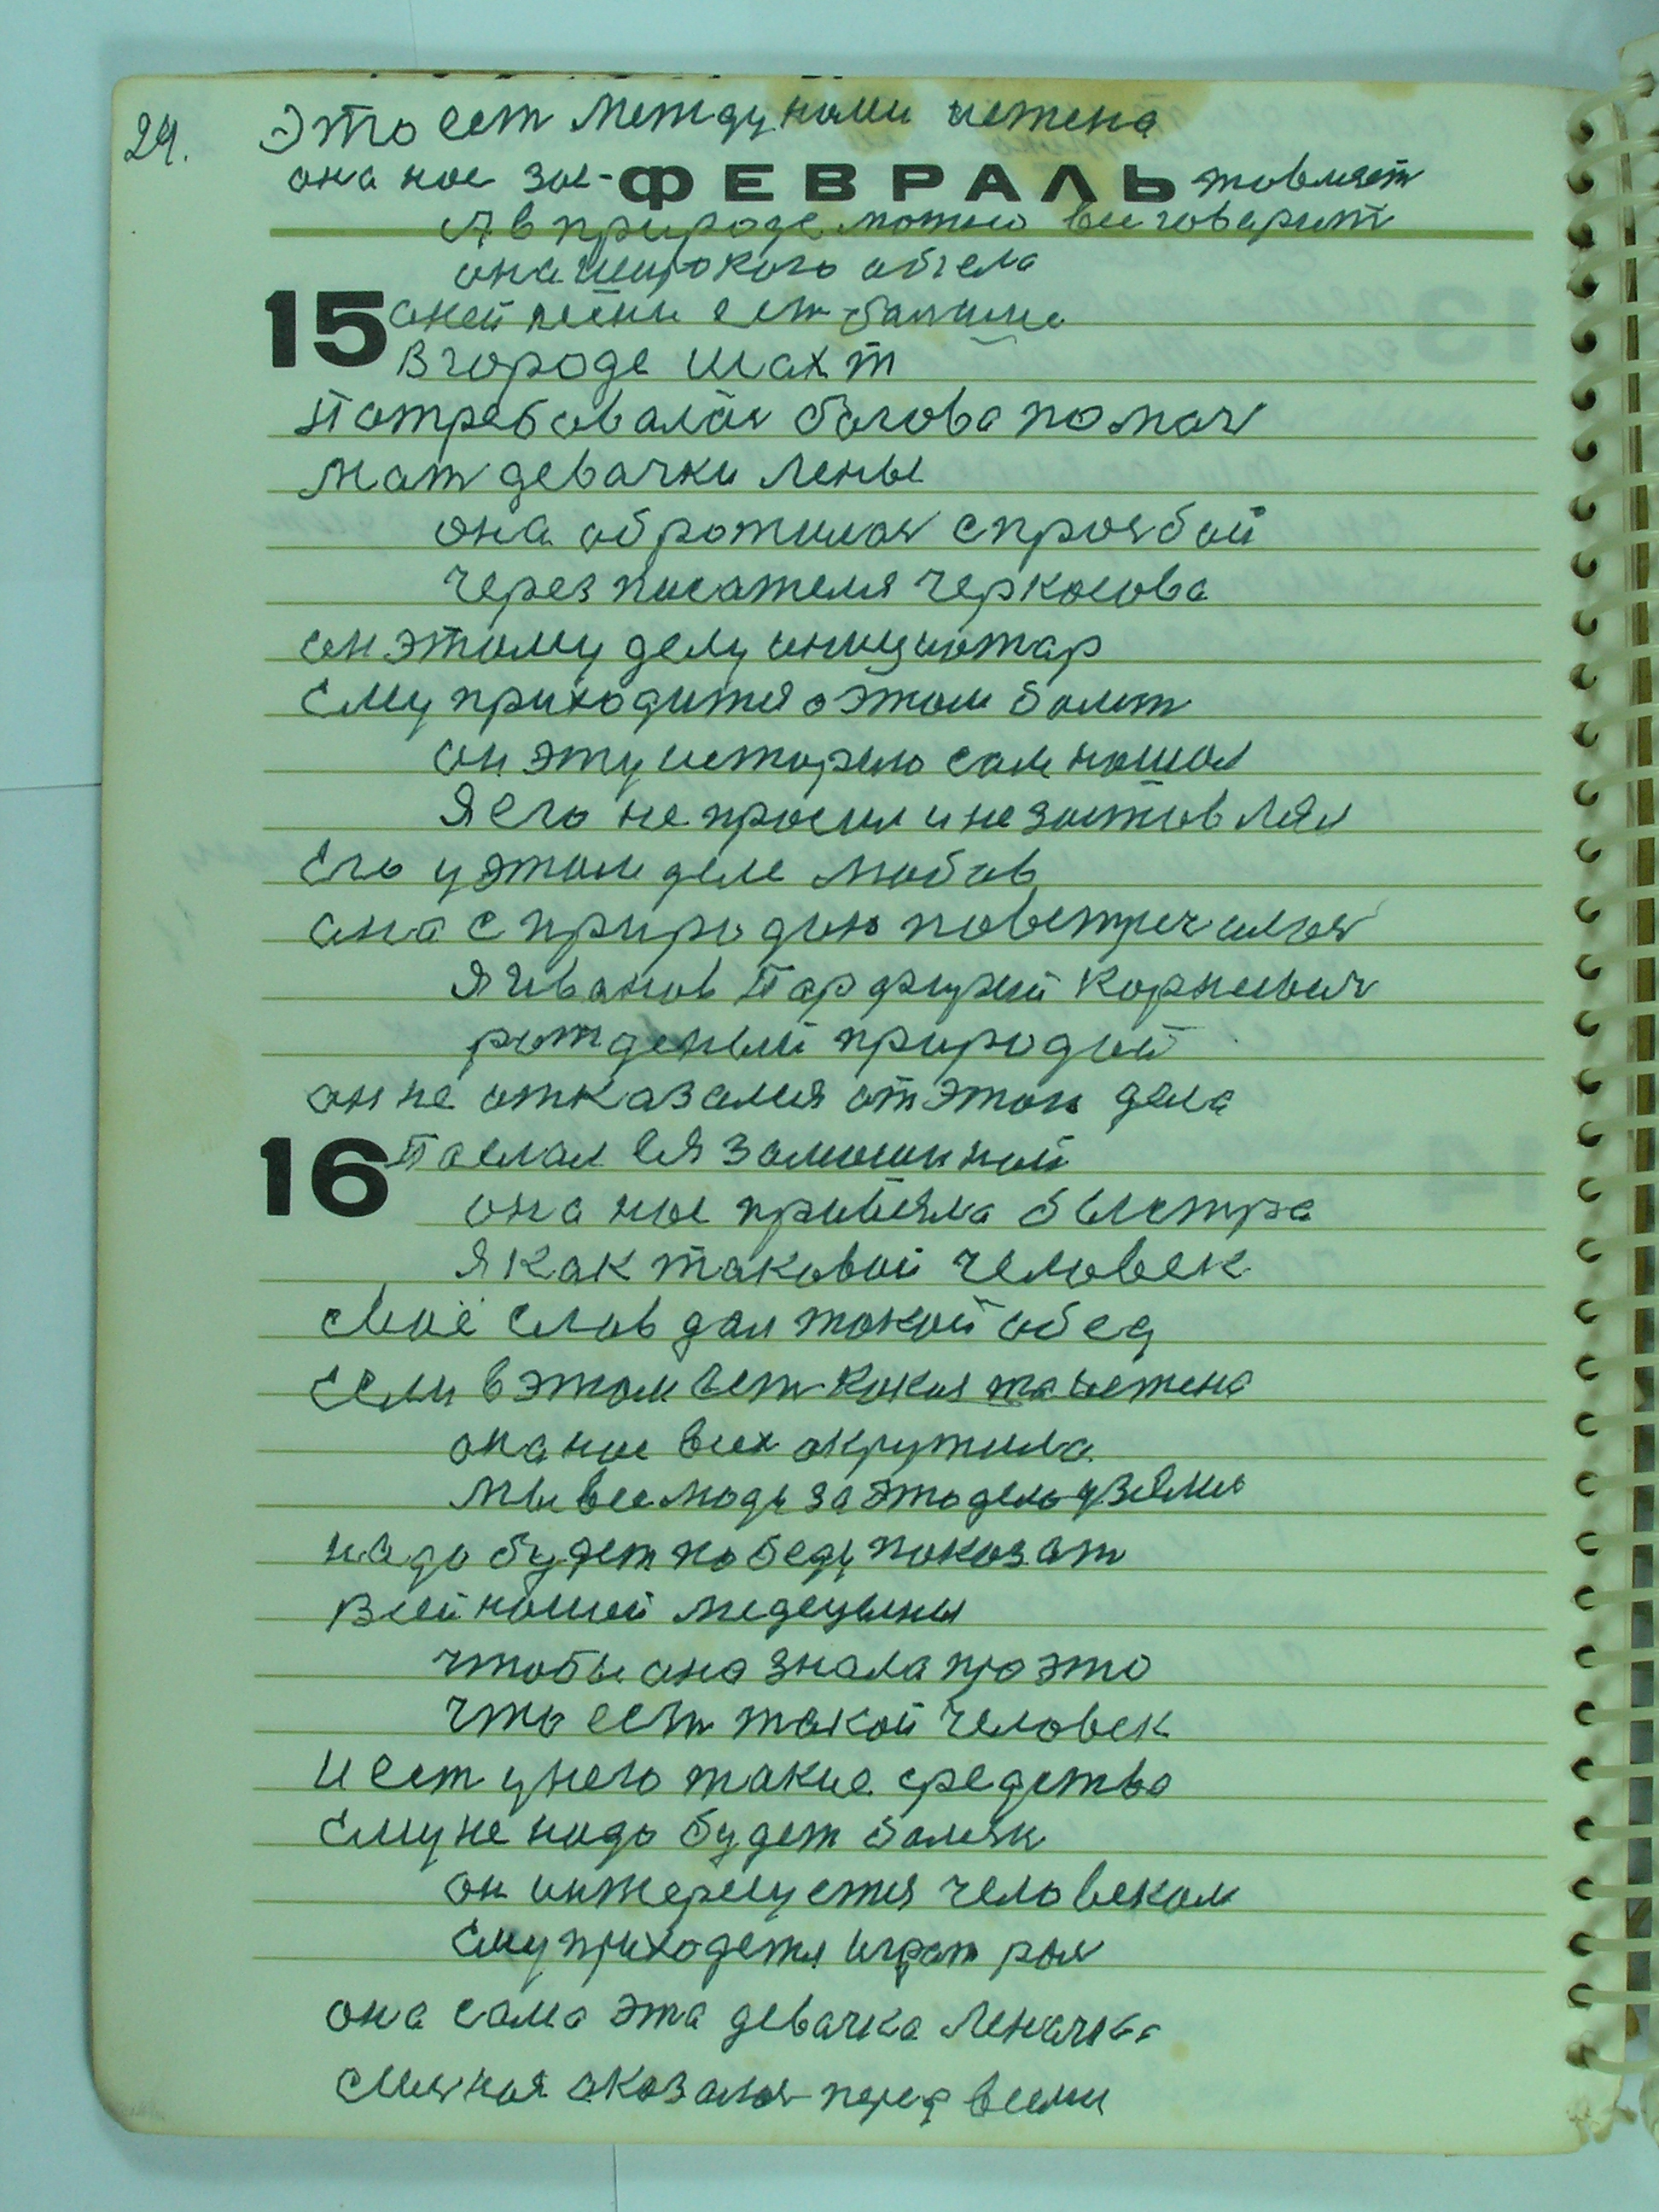 24. Это ест между нами истена
она нас зас- ФЕВРАЛЬ товляет
А в природе можно все говарит
она широкого обгема
15 оней песни ест
В городе шахт
Патребовалас багова помач
мат девачки Лены
она обротилас с прозбой
через писателя Черкосова
он этому делу инициатар
Ему приходится о этом болет
он эту историю сам нашол
Я его не просил и не заставлял
Его у этом деле любов
она с природою повстричалас
Я Иванов Парфирий Корнеевич
рожденый природой
он не отказался от этого дела
16 Паслал ея за машиной
она нас привезла быстра
Я как таковой человек
Моё слов дал такой обед
Если в этом ест какая та истена
она нас всех окружила
Мы все люди за это дело узялис
надо будет победу показат
Всей нашей медецыны
чтобы она знала про это
что есть такой человек
И ест у него такие средства
Ему не надо будет баляк
он интересуется человеком
Ему приходется играт рол
она сама эта девачка Леначка
смачная оказалас перед всеми